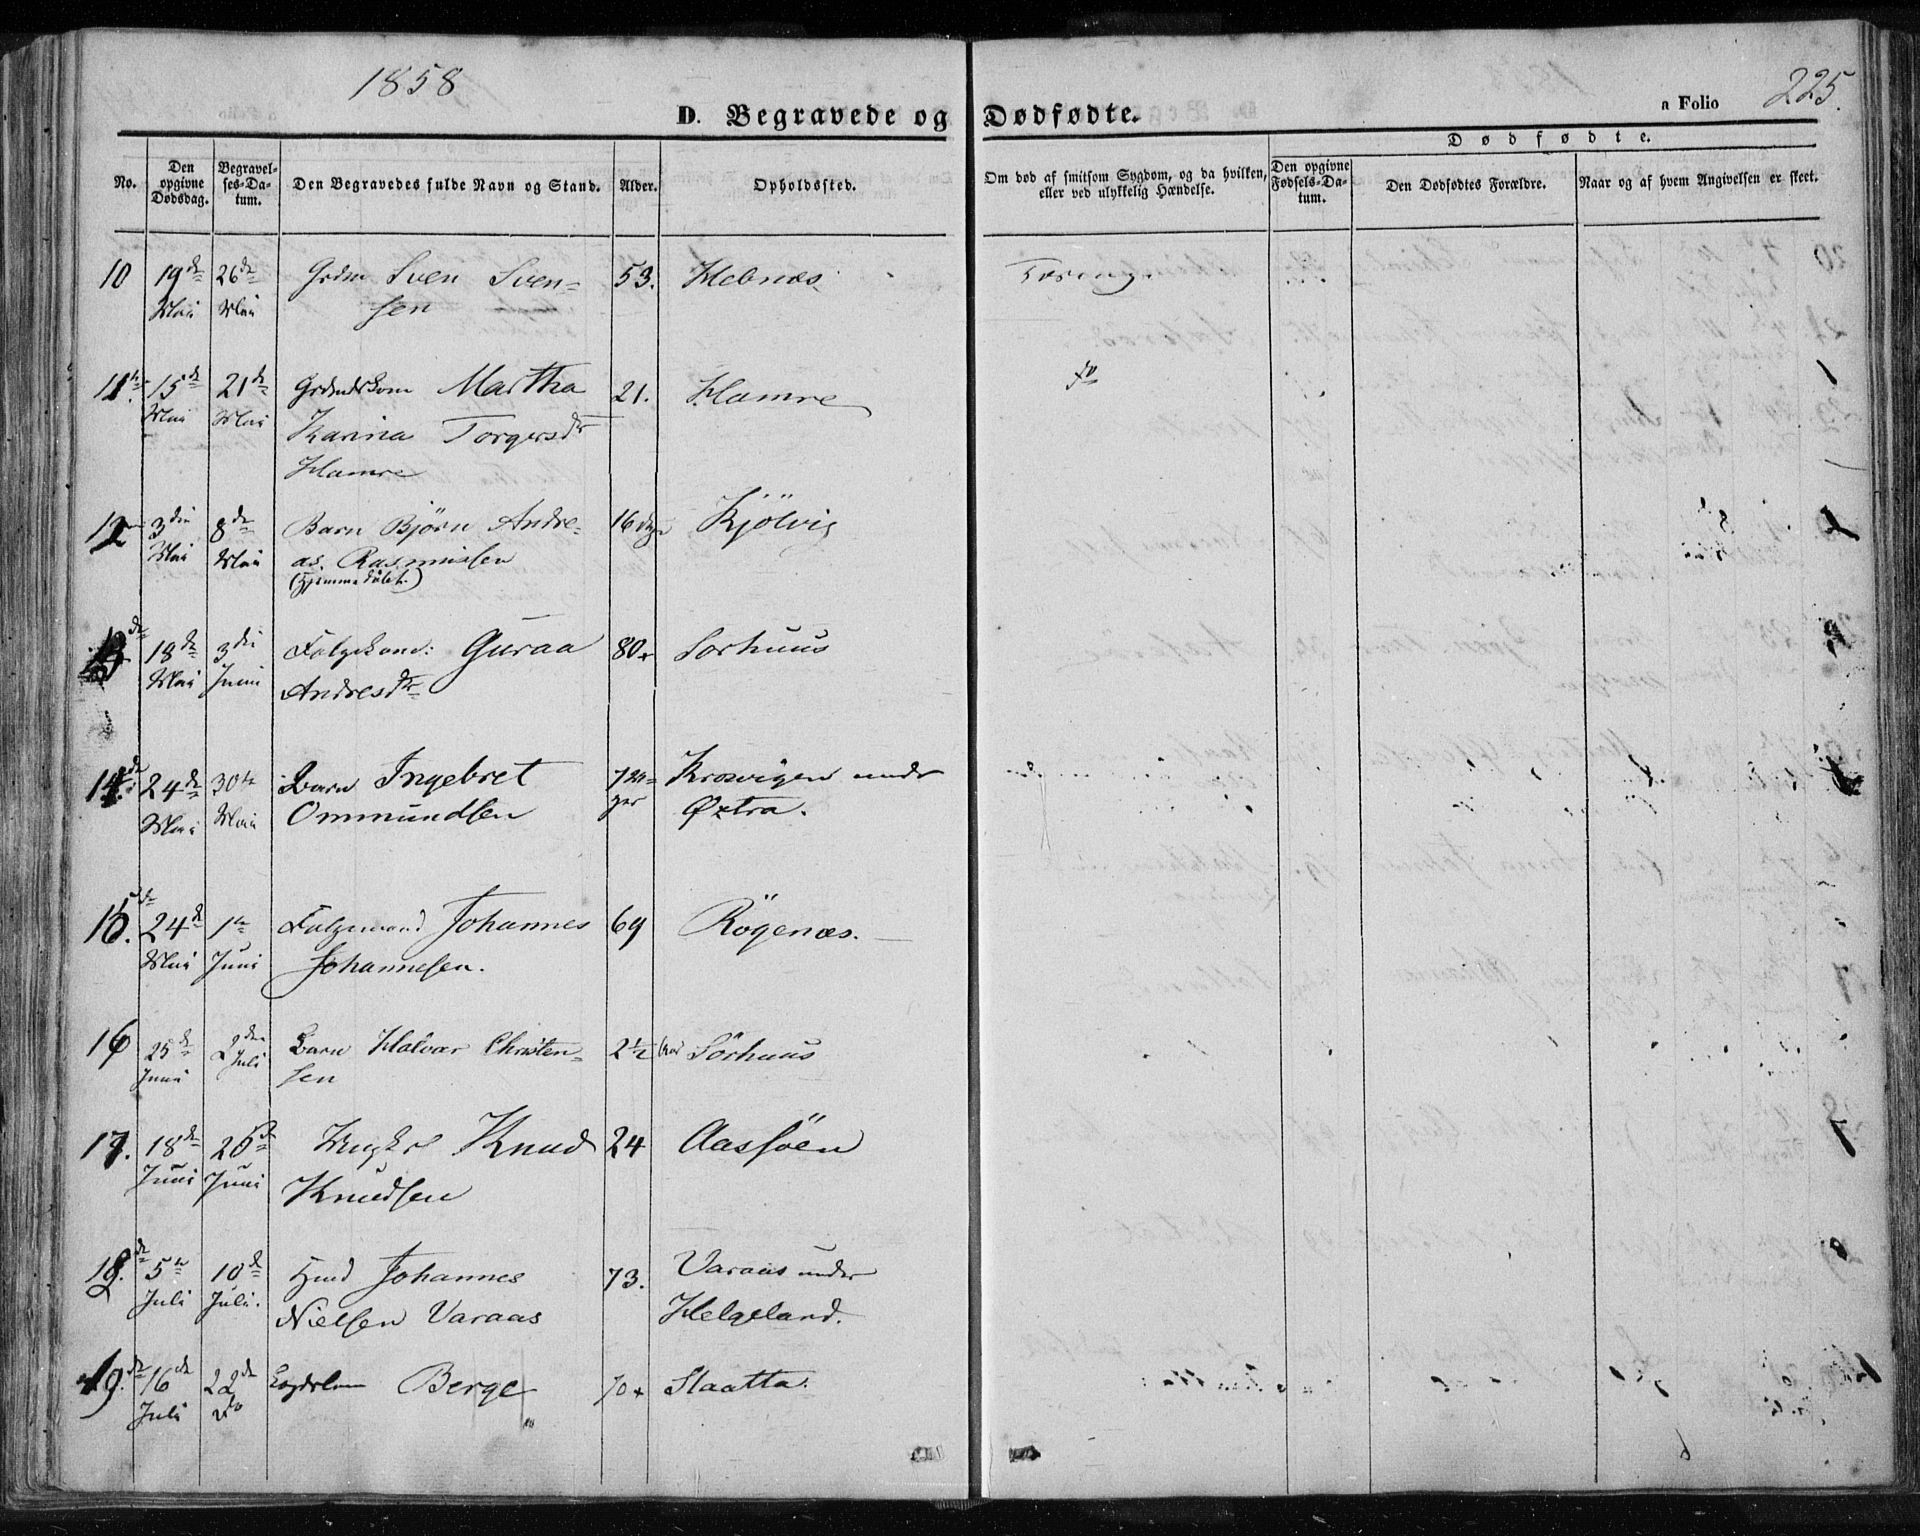 1858
225.
D. Begravede og Dødfødte.
a Folio
Dødfødte.
No.
Den opgivne Dødsdag.
Begravelses-Datum.
Den Begravedes fulde Navn og Stand.
Alder.
Opholdssted.
Om død af smitsom Sygdom, og da hvilken, eller ved ulykkelig Hændelse.
Den opgivne Fødsels-Datum.
Den Dødfødtes Forældre.
Naar og af hvem Angivelsen er skeet.
10 19de 26de Grdm Sven Sven- 53. Hebnæs Tæring
Mai Mai sen
11te 15de 21de Martha 21. Hamre do
Mai Mai Karina Torgersdr
Hamre
12 3die 8de Barn Bjørn Andre- 16 dage Kjölvig
Mai Mai as Rasmussen
(Hjemmedöbt.)
13de 18de 3die Folgekone: Guraa 80 Sørhuus
Mai Juni Andresdr
14de 24de 30te Barn Ingebret 7 Da- Krosvigen under
Mai Mai Ommundsen ger Øxtra.
15de 24de 1te Folgemand Johannes 69 Rögenæs.
Mai Juni Johannesen.
16 25de 2den Barn Halvar Christen- 2½ Aar Sörhuus
Juni Juli sen
17. 18de 26de Ungkrl Knud 24 Aassöen
Juni Juni Knudsen
18de 5te 10de Hmd Johannes 73. Varaas under
Juli Juli. Nielsen Varaas Helgeland.
19de 16de 22de Berge 70 Slaatta.
Juli do